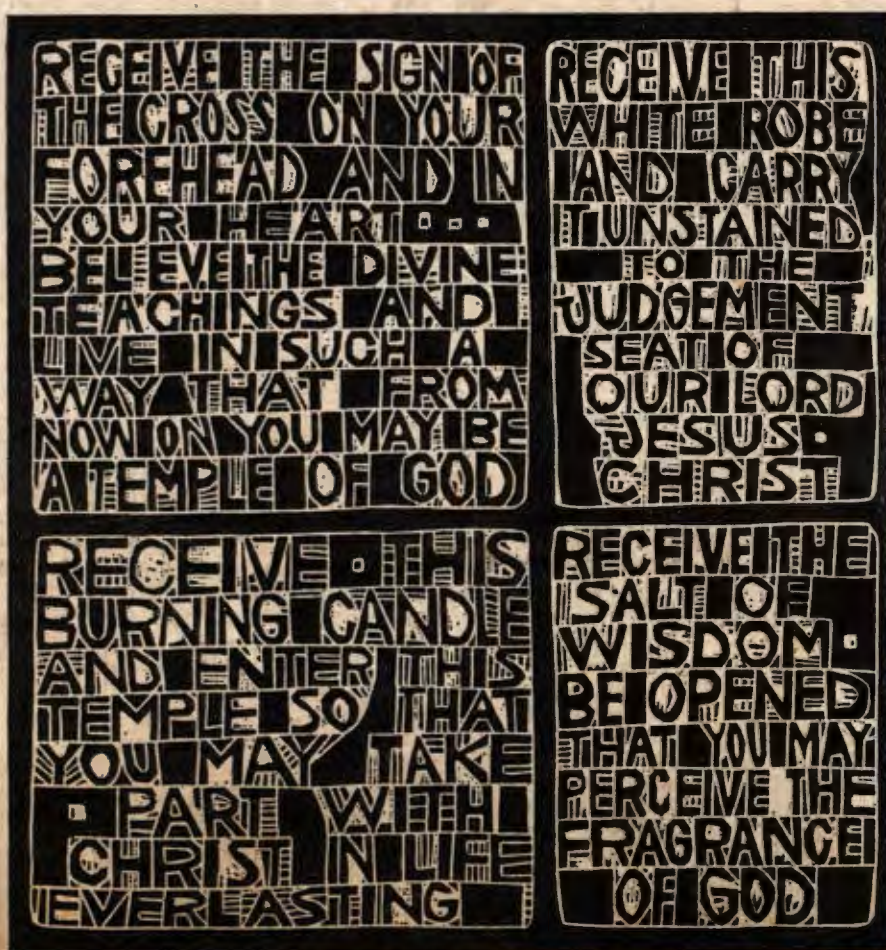 RECEIVE THE SIGN OF
THE CROSS ON YOUR
FOREHEAD AND IN
YOUR HEART...
BELIEVE THE DIVINE
TEACHINGS AND
LIVE IN SUCH A
WAY THAT FROM
NOW ON YOU MAY BE
A TEMPLE OF GOD
RECEIVE THIS
WHITE ROBE
AND CARRY
IT UNSTAINED
TO THE
JUDGEMENT
SEAT OF
OUR LORD
JESUS.
CHRIST
RECEIVE . THIS
BURNING CANDLE
AND ENTER THIS
TEMPLE SO THAT
YOU MAY TAKE
. PART WITH
CHRIST IN LIFE
EVERLASTING
RECEIVE THE
SALT OF
WISDOM.
BE OPENED
THAT YOU MAY
PERCEIVE THE
FRAGRANCE
OF GOD